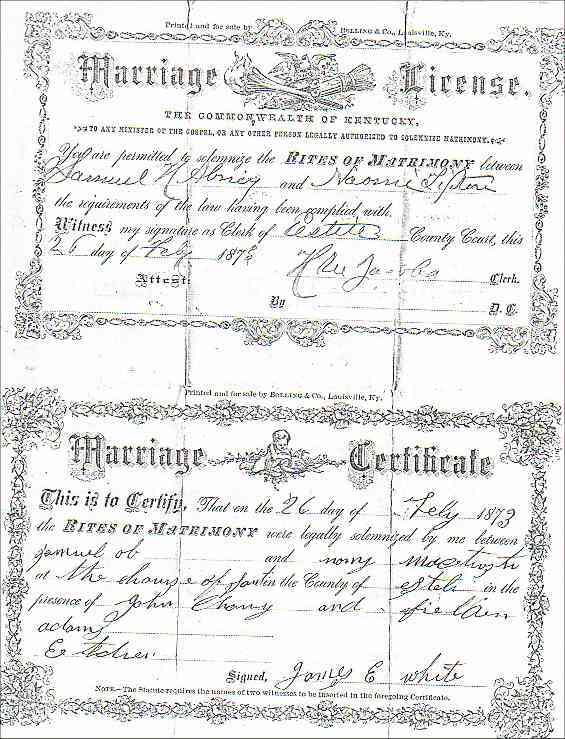 Printed and for sale by BOLLING & CO., Louisville, Ky.
Marriage License.
THE COMMONWEALTH OF KENTUCKY,
TO ANY MINISTER OF THE GOSPEL, OR ANY OTHER PERSON LEGALLY AUTHORIZED TO SOLEMNISE MATRIMONY.
You are permitted to solemnize the RITES OF MATRIMONY between
Samuel H Abney and Naomi
the requirements of the law having been complied with.
Witness my signature as Clerk of Estill County Court, this
day of Feby 187
Attest: Jacobs Clerk.
By D. C.
Printed and for sale by BOLLING & CO., Louisville, Ky.
Marriage Certificate
This is to Certify, That on the 26 day of Feby 1873
the RITES OF MATRIMONY were legally solemnized by me between
Samuel ob and
at the of in the County of in the
presence of John and
adams
Signed, James E white
NOTE.—The Statute requires the names of two witnesses to be inserted in the foregoing Certificate.